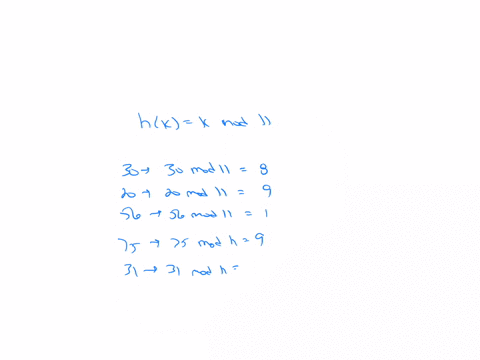 h(k) = k mod 11
30 → 30 mod 11 = 8
20 → 20 mod 11 = 9
56 → 56 mod 11 = 1
75 → 75 mod 11 = 9
31 → 31 mod 11 =